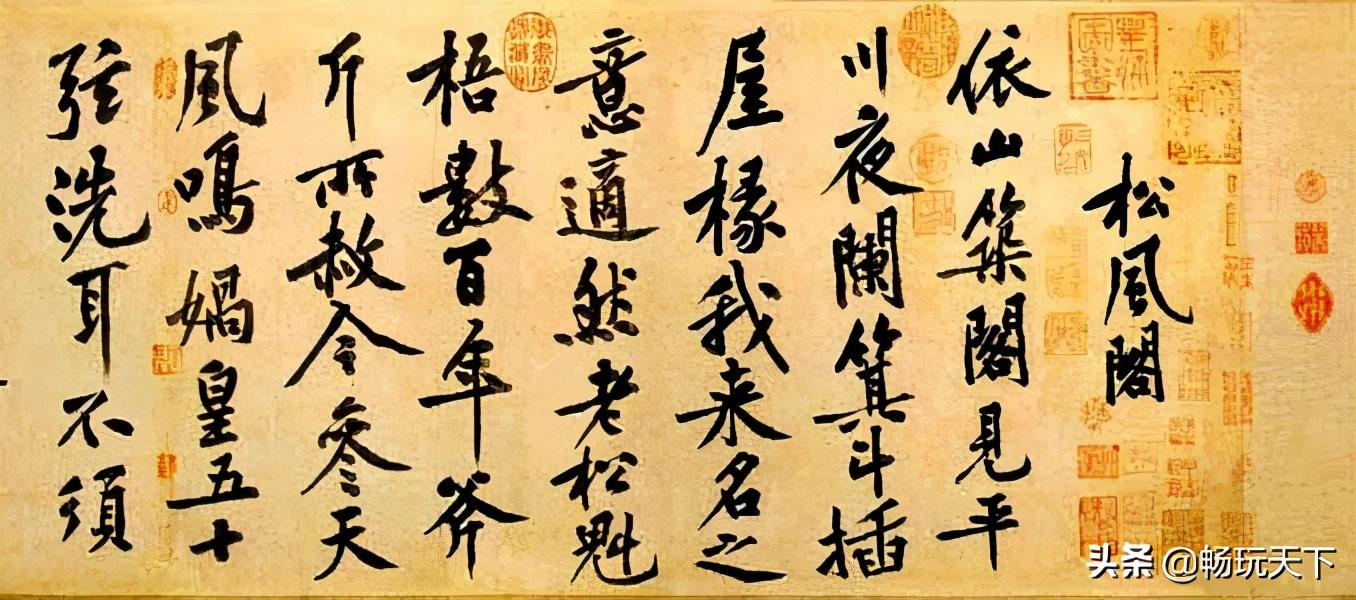 松風閣
依山築閣見平
川夜闌箕斗插
屋椽我来名之
意適然老松魁
梧數百年斧
斤所赦今參天
風鳴媧皇五十
弦洗耳不須
头条 @畅玩天下